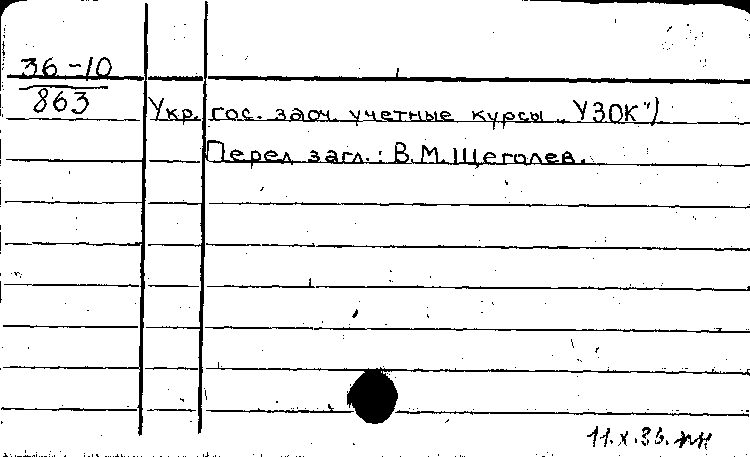 36-10
863
Укр. гос. заоч. учетные курсы „УЗОК")
Перед загл.: В.М. Щеголев.
11.X.36.